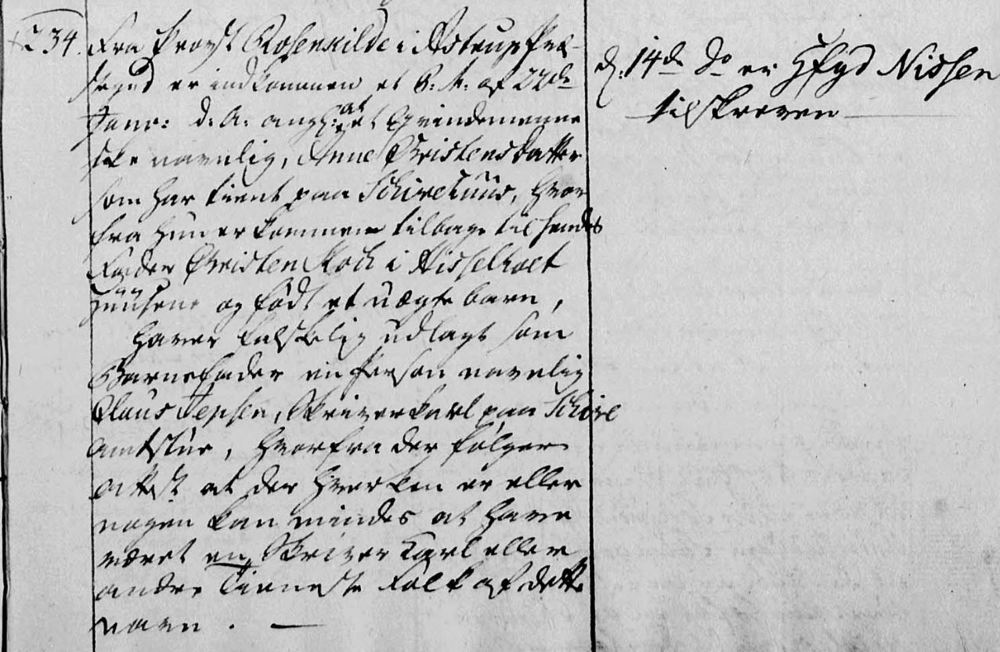 234. Fra Provst Rosenkilde i Astrup Præ-
stegd er indkommen et P. M. af 22de
Janr: d. A. angl: at et Qvindemenne
ske navnlig, Anne Christensdatter
som har tient paa Schivehuus, hvor
fra hun er kommen tilbage til hendes
Fader Christen Koch i Hisselholt
huusene og födt et uægte barn,
haver falskelig udlagt som
Barnefader en Person navnlig
Claus Jepsen, Skriverkarl paa Schive
Amtstue, hvorfra der fölger
attest at der hverken er eller
nogen kan mindes at have
været en Skriver Karl eller
andre Tieneste Folk af dette
navn. —
d. 14de do er Hfgd Nissen
tilskreven